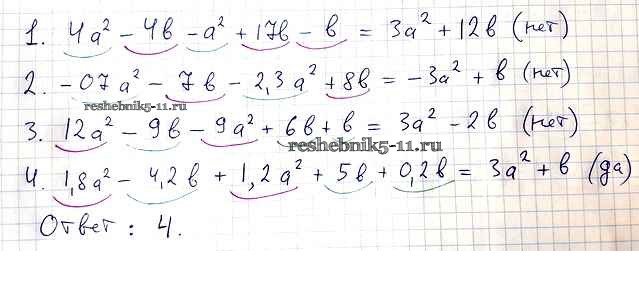 1. 4a² − 4b − a² + 17b − b = 3a² + 12b (нет)
2. −07a² − 7b − 2,3a² + 8b = −3a² + b (нет)
reshebnik5-11.ru
3. 12a² − 9b − 9a² + 6b + b = 3a² − 2b (нет)
reshebnik5-11.ru
4. 1,8a² − 4,2b + 1,2a² + 5b + 0,2b = 3a² + b (да)
Ответ : 4.